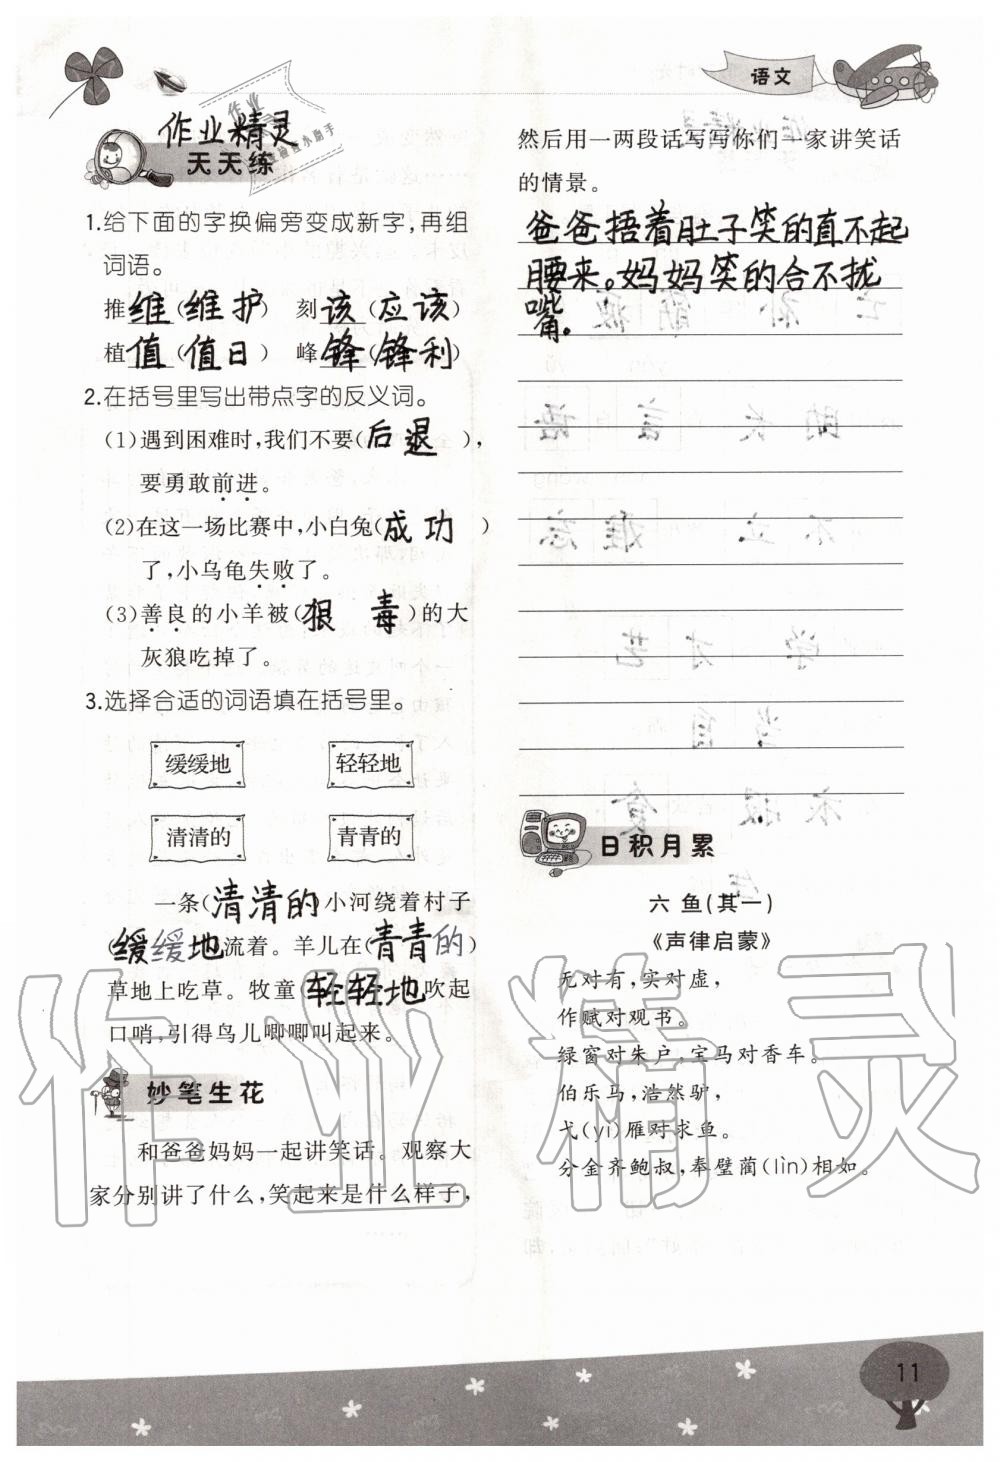 语文
作业精灵
天天练
1.给下面的字换偏旁变成新字,再组
词语。
推 维(维护) 刻 该(应该)
植 值(值日) 峰 锋(锋利)
2.在括号里写出带点字的反义词。
(1)遇到困难时,我们不要(后退),
要勇敢前进。
(2)在这一场比赛中,小白兔(成功)
了,小乌龟失败了。
(3)善良的小羊被(狠毒)的大
灰狼吃掉了。
3.选择合适的词语填在括号里。
缓缓地 轻轻地
清清的 青青的
一条(清清的)小河绕着村子
(缓缓地)流着。羊儿在(青青的)
草地上吃草。牧童(轻轻地)吹起
口哨,引得鸟儿唧唧叫起来。
妙笔生花
和爸爸妈妈一起讲笑话。观察大
家分别讲了什么,笑起来是什么样子,
然后用一两段话写写你们一家讲笑话
的情景。
爸爸捂着肚子笑的直不起
腰来。妈妈笑的合不拢
嘴。
日积月累
六 鱼(其一)
《声律启蒙》
无对有,实对虚,
作赋对观书。
绿窗对朱户,宝马对香车。
伯乐马,浩然驴,
弋(yì)雁对求鱼。
分金齐鲍叔,奉璧蔺(lìn)相如。
作业精灵
11